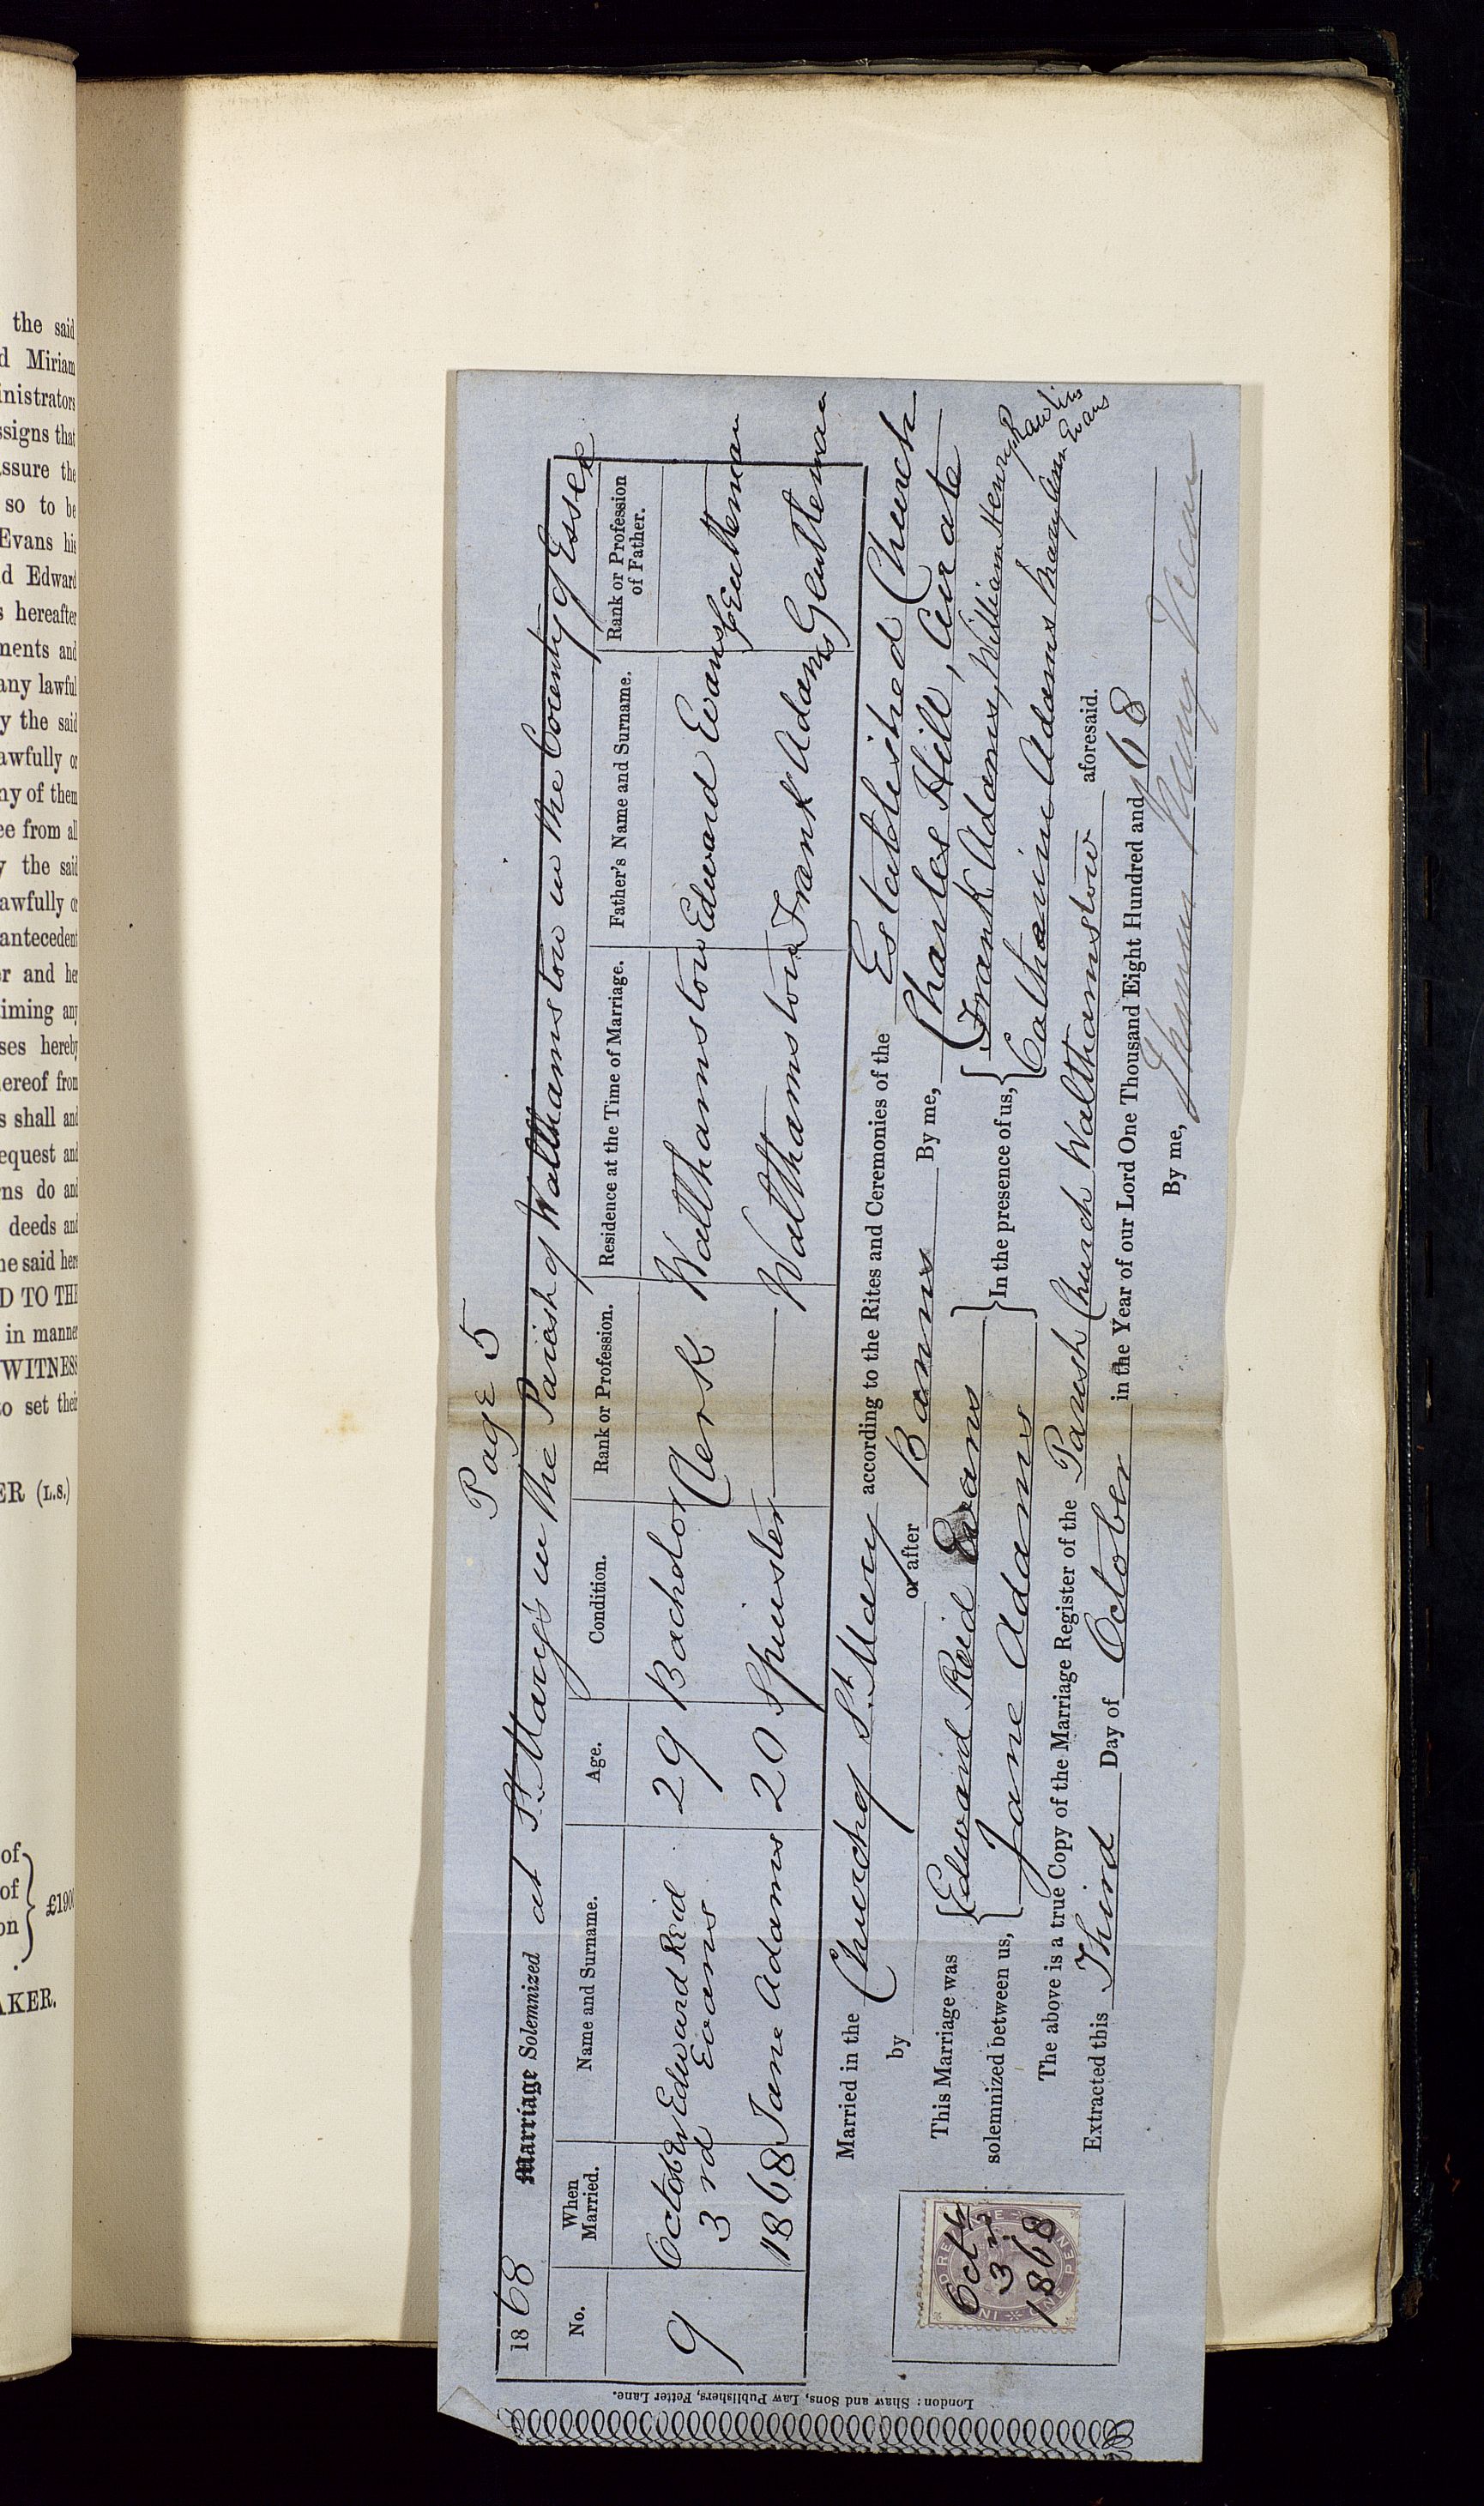 the said
d Miriam
inistrators
ssigns that
assure the
so to be
Evans his
d Edward
s hereafter
ments and
any lawful
y the said
awfully or
ny of them
ee from all
y the said
awfully or
antecedent
er and her
iming any
ses hereby
hereof from
s shall and
equest and
rns do and
deeds and
he said here
D TO THE
in manner
WITNESS
to set their
ER (L.S.)
of
of
on } £190
AKER.
Page 5
1868 Marriage Solemnized at St. Mary's in the Parish of Walthamstow in the County of Essex
No. When Married. Name and Surname. Age. Condition. Rank or Profession. Residence at the Time of Marriage. Father's Name and Surname. Rank or Profession of Father.
9 October 3rd 1868
Edward Reid Evans 29 Bachelor Clerk Walthamstow Edward Evans Gentleman
Jane Adams 20 Spinster Walthamstow Frank Adams Gentleman
Married in the Church of St. Mary according to the Rites and Ceremonies of the Established Church
by or after Banns By me, Charles Hill, Curate
This Marriage was solemnized between us, { Edward Reid Evans
Jane Adams } In the presence of us, { Frank Adams, William Henry Rawlins
Catharine Adams Mary Ann Evans
The above is a true Copy of the Marriage Register of the Parish Church Walthamstow aforesaid.
Extracted this Third Day of October in the Year of our Lord One Thousand Eight Hundred and 68
By me, Thomas
INLAND REVENUE
ONE PENNY
Octr
3rd
1868
London: Shaw and Sons, Law Publishers, Fetter Lane.